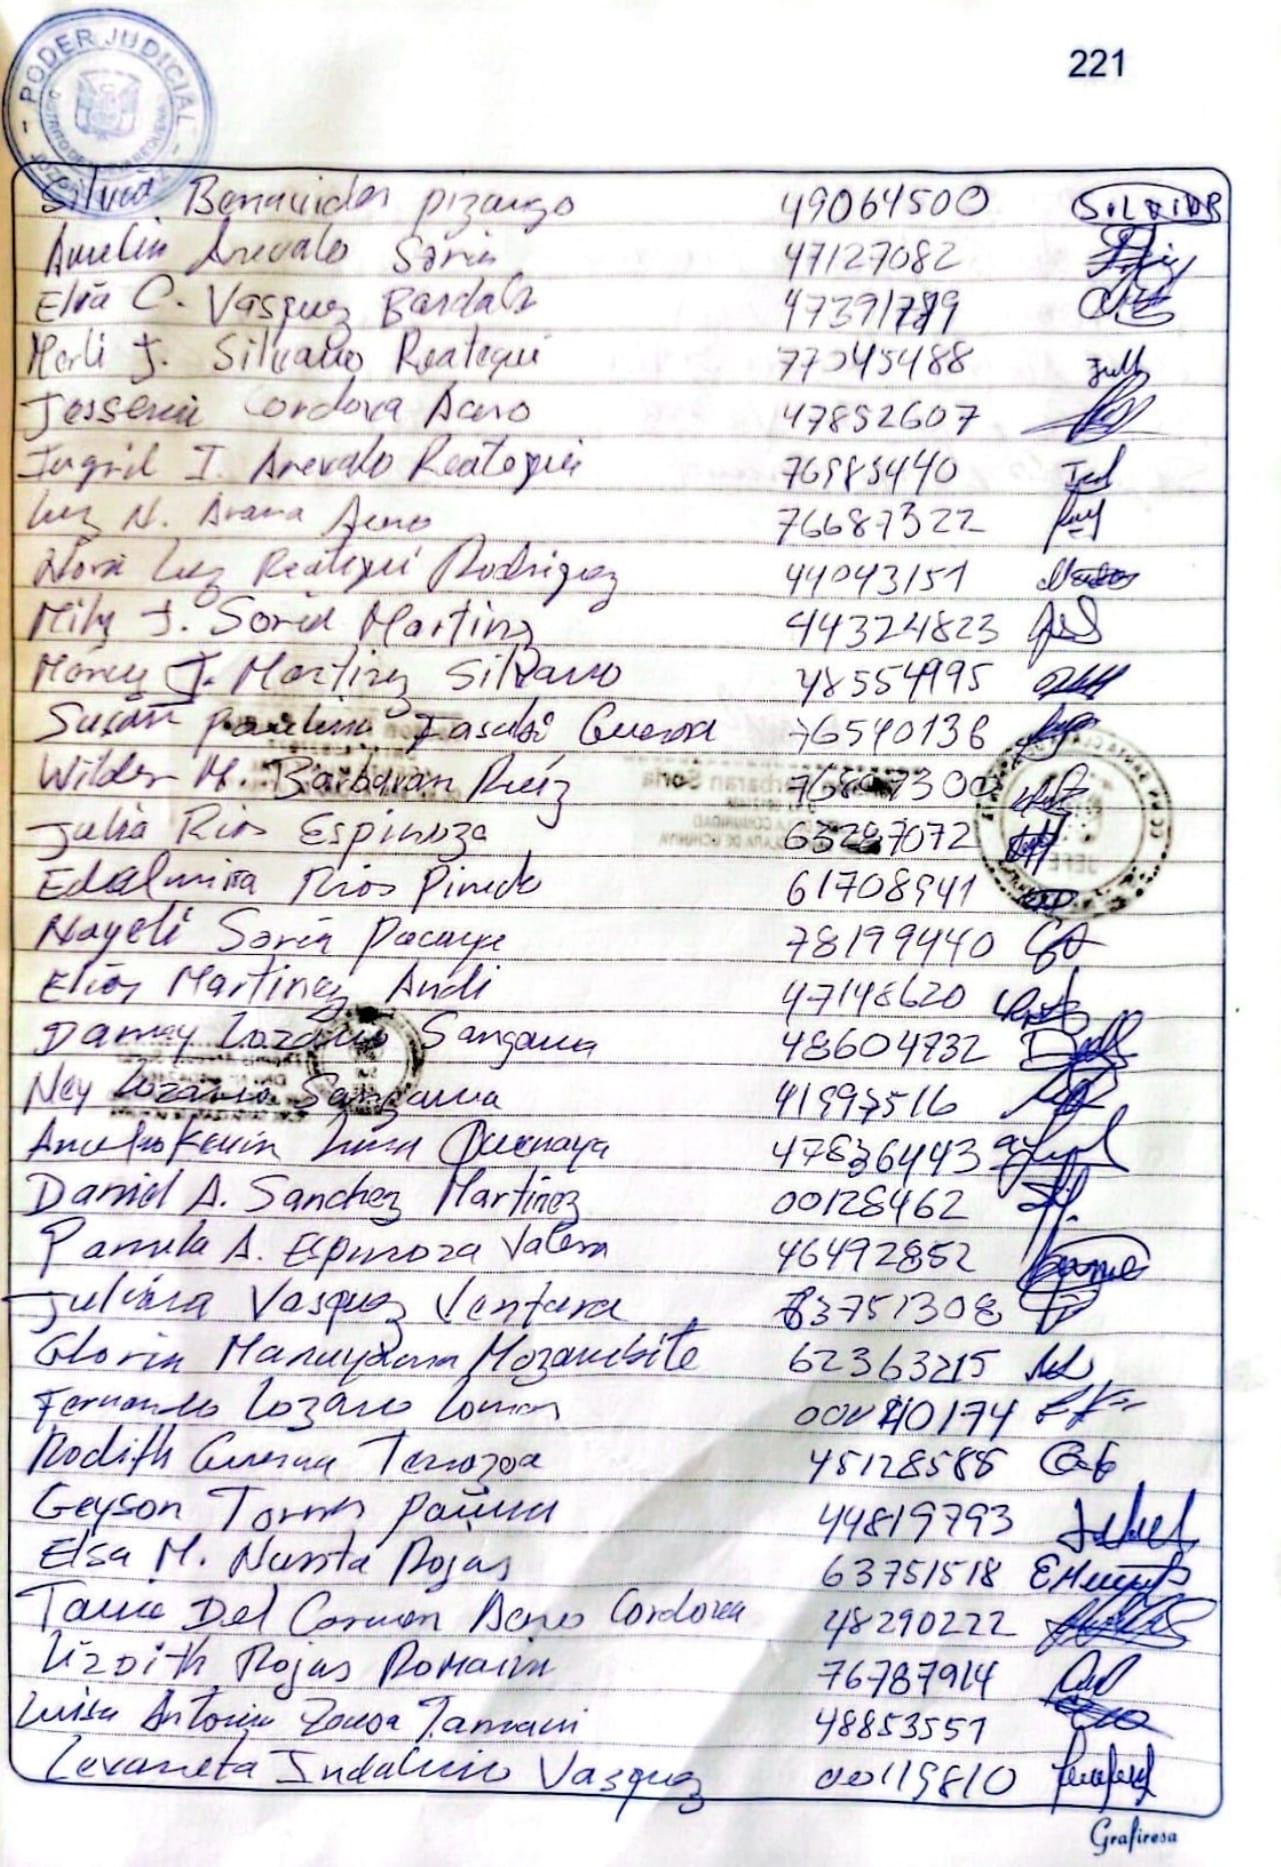 221
PODER JUDICIAL
Silvia Benavides Pizango 49064500 SILVIAB
Aurelia Arevalo Soria 47127082
Elva C. Vasquez Bardalez
Merli J. Silvano Reategui 77045488
Jessenia Cordova Acero 47852607
Ingrid I. Arevalo Reategui 76985440
Luz N. Arana 76687322
Nora Luz Reategui Rodriguez 44043151
Mily J. Soria Martinez 44324823
Marcy J. Martinez Silvano 48554995
Susan Paulina Tasabi Guerra 76540138
Wilder M. Barbaran Ruíz
Julia Rios Espinoza
Edelmira Rios Pinedo 61708941
Nayeli Soria Pacaya 78199440
Elías Martinez Andi 47148620
Damey Lozano Sangama 48604732
Ney Lozano Sangama 41997516
Kevin Luna 47836443
Daniel A. Sanchez Martinez 00128462
Pamela A. Espinoza Valera 46492852
Juliana Vasquez Ventura 63751308
Gloria Manuyama Mozambite 62363215
Fernando Lozano
Rodith Guerra 45128588
Geyson Torres 44819793
Elsa M. Nunta Rojas 63751518
Tania Del Carmen Acero Cordova 48290222
Lizdith Rojas Romaina 76787914
Luisa Antonia Tamani 48853551
Levaneta Indalicio Vasquez 00119810
Grafiresa